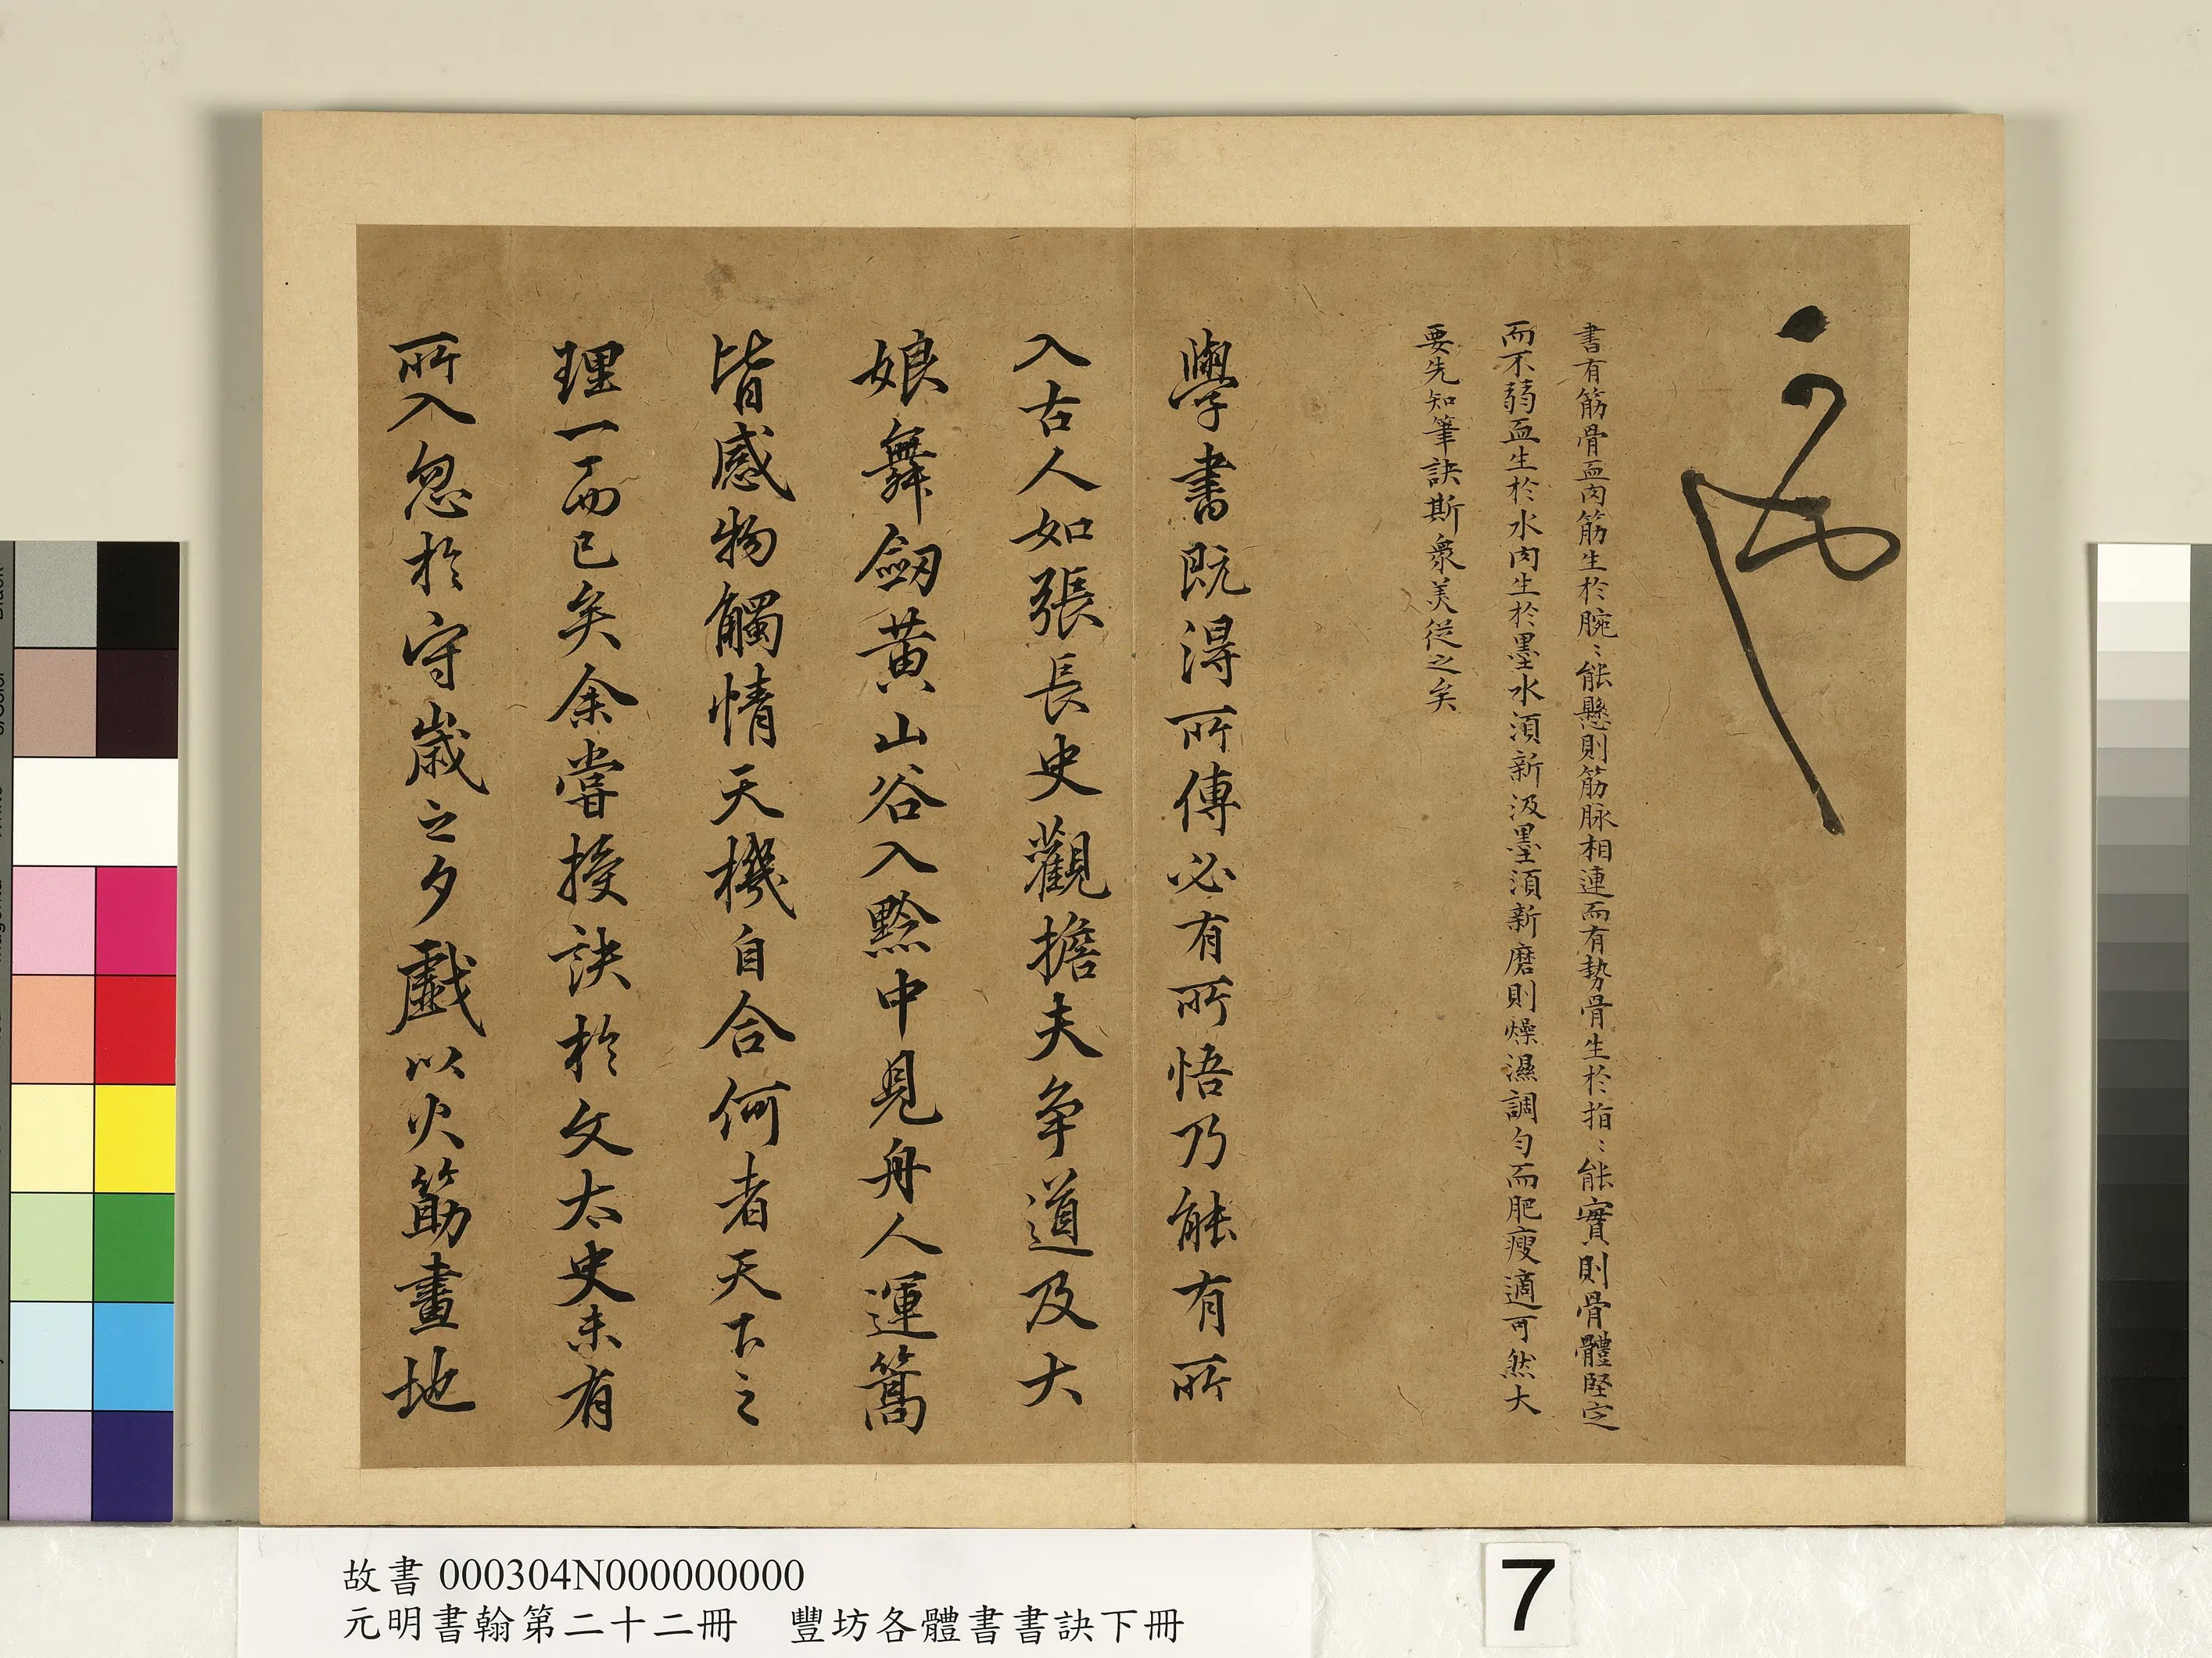 書有筋骨血肉筋生於腕〻能懸則筋脉相連而有勢骨生於指〻能實則骨體堅定
而不弱血生於水肉生於墨水須新汲墨須新磨則燥濕調匀而肥瘦適可然大
要先知筆訣斯衆美從之矣
學書既得所傳必有所悟乃能有所
入古人如張長史觀擔夫争道及大
娘舞劒黄山谷入黔中見舟人運篙
皆感物觸情天機自合何者天下之
理一而已矣余嘗授訣於文太史未有
所入忽於守歲之夕戲以火筯畫地
故書 000304N000000000
元明書翰第二十二冊 豐坊各體書書訣下冊
7